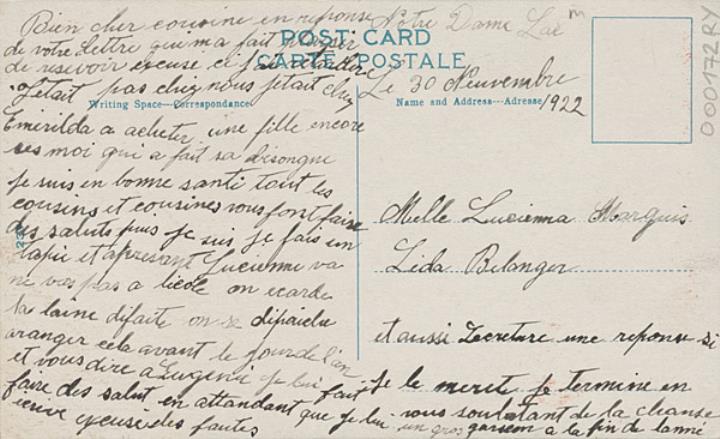 Bien cher cousine en reponse
de votre lettre qui m a fait plaiser
de resevoir excuse ci j ai retardere
j etait pas chez nous j etait chez
Emerilda a acheter une fille encore
ses moi qui a fait sa besongne
Je suis en bonne santé tout les
cousins et cousines vous font faire
des saluts puis je suis je fais un
tapie et apresant Lucienne va
ne vas pas a lecole on ecarde
la laine difaite on se dipaiche
aranger cela avant le jour de l an
et vous dire a Eugenie je lui fait
faire des salut en attandant que je lui
ecrive excuse des fautes
POST CARD
CARTE POSTALE
Writing Space—Correspondance
Name and Address—Adresse
Notre Dame Lac
m
Le 30 Neuvembre
1922
Melle Lucienna Marquis
Lida Belanger
et aussi une reponse si
je le merite je termine en
vous souhaitant de la chanse
un gros garcon a la fin de lanné
000172RY